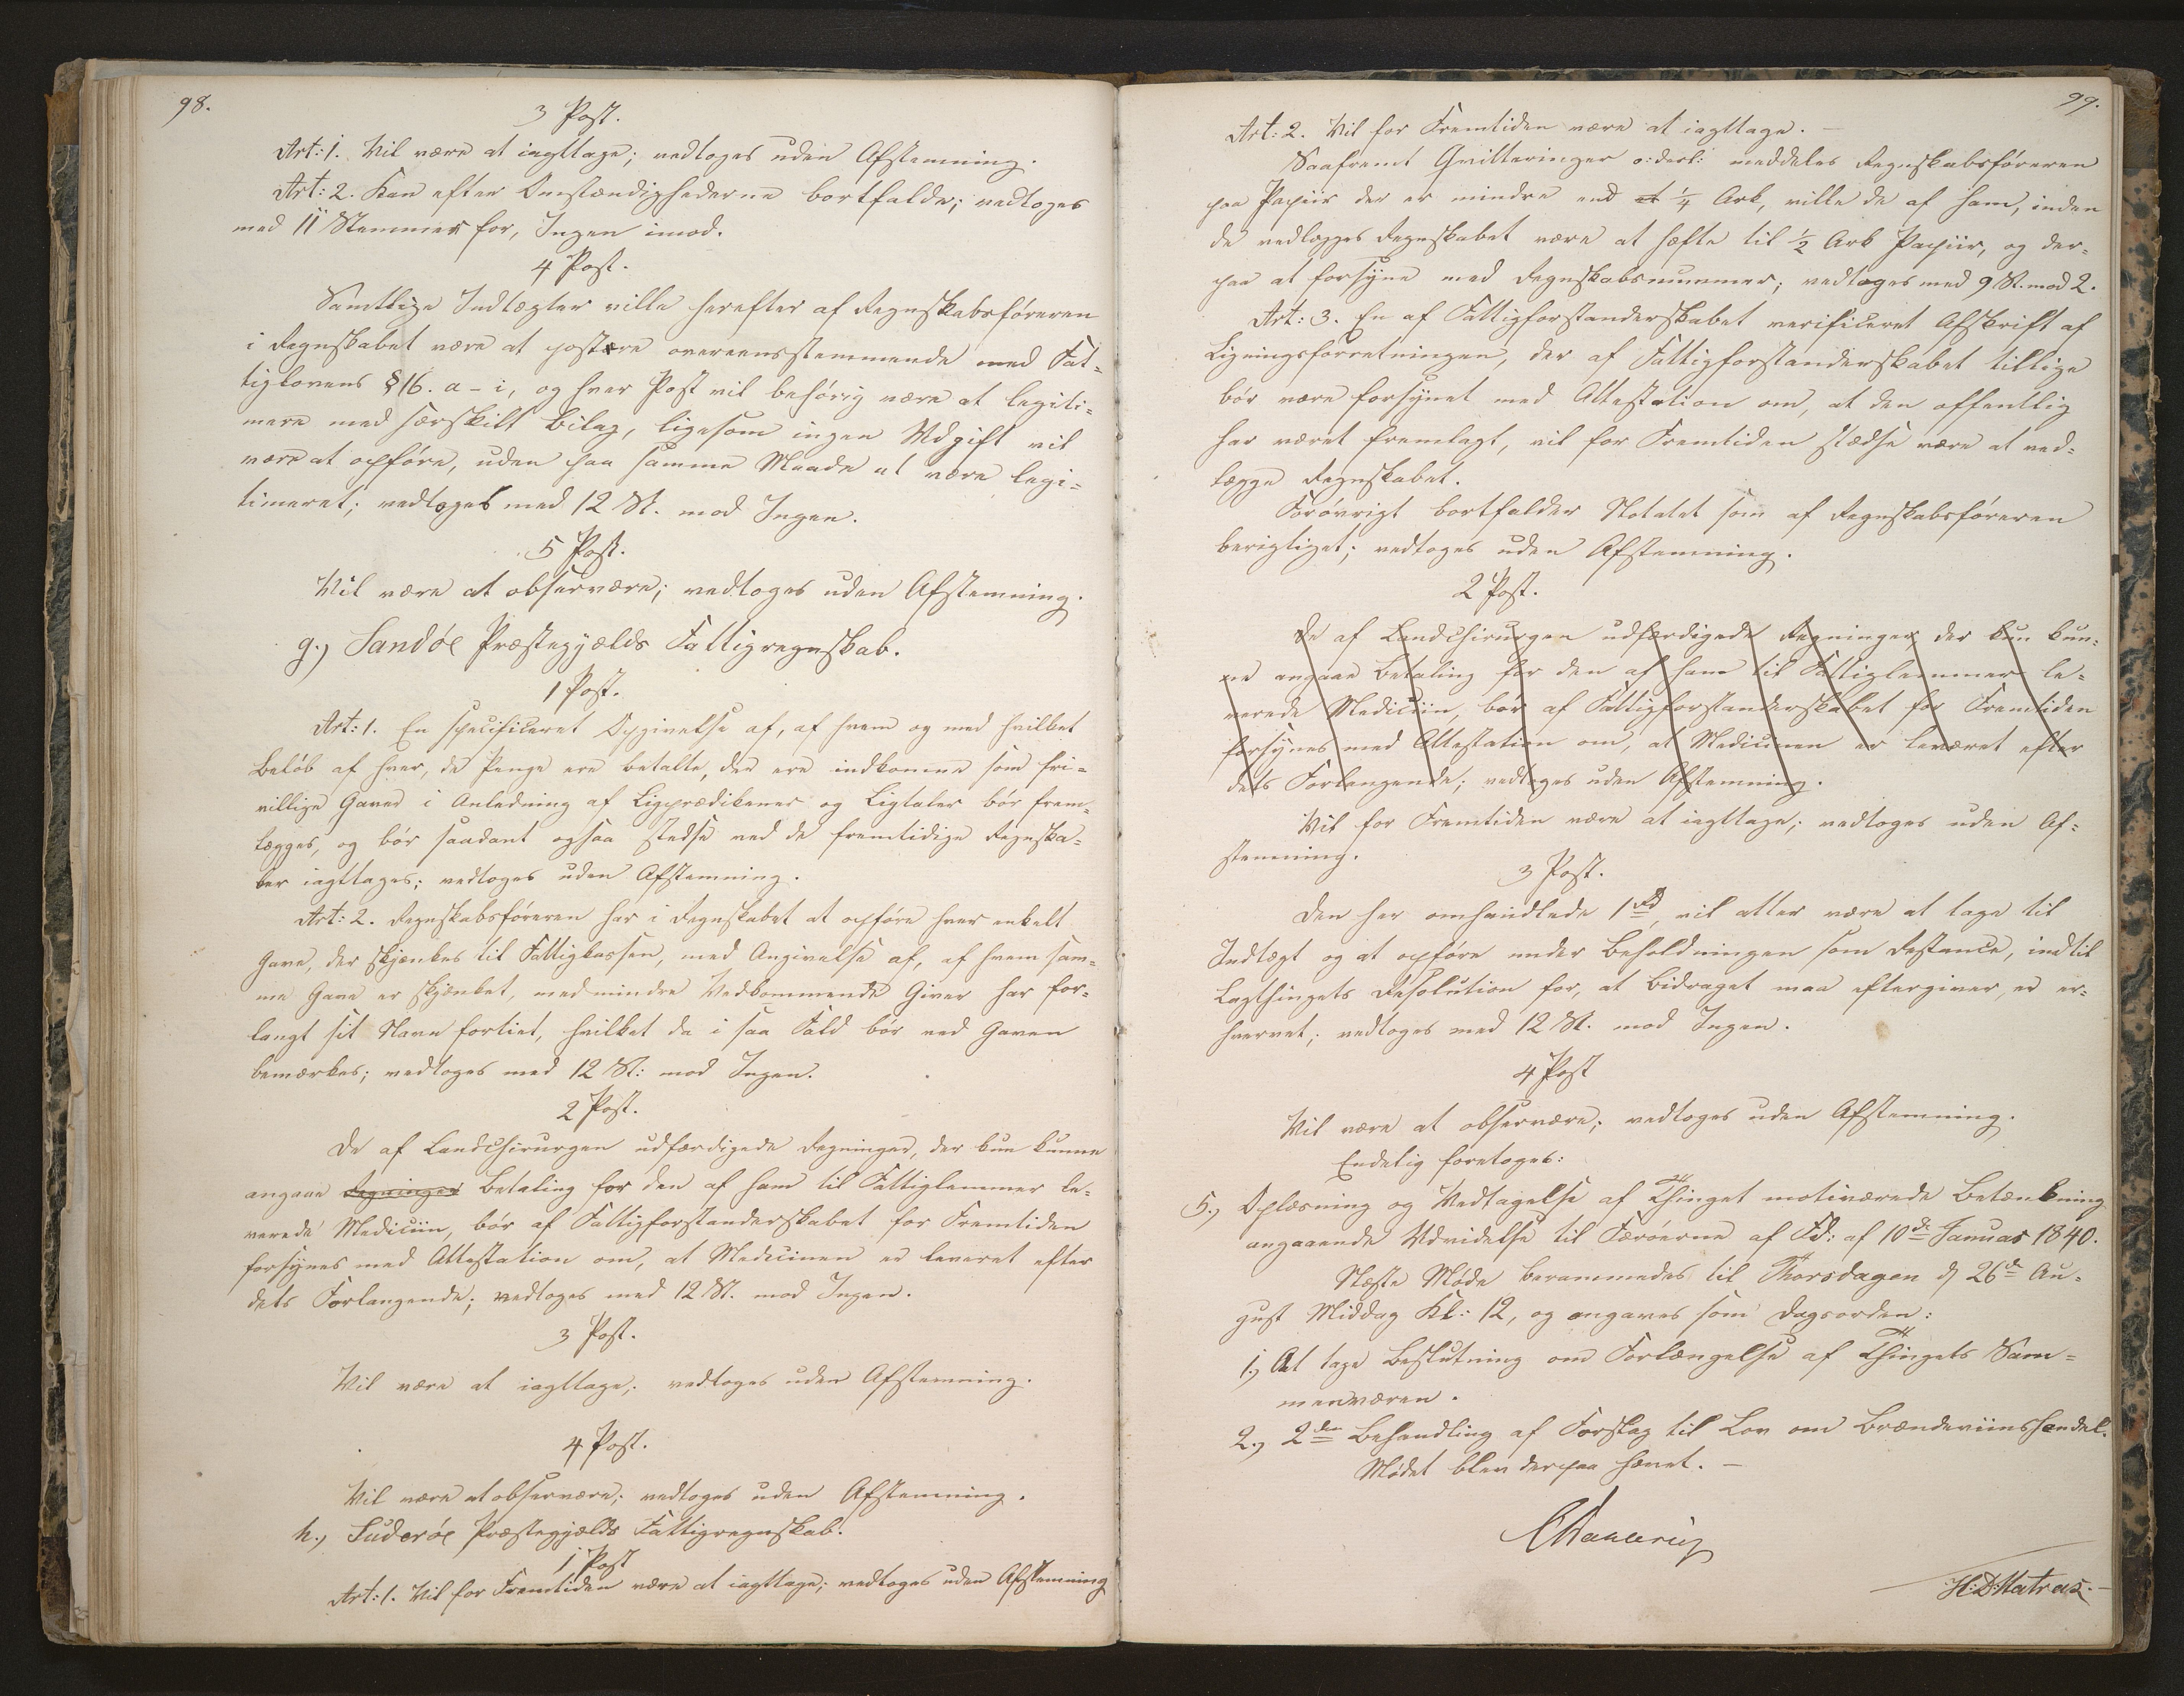 98.
3 Post.
Art: 1. Vil være at iagttage; vedtoges uden Afstemning.
Art: 2. Kan efter Omstændighederne bortfalde; vedtoges
med 11 Stemmer for, Ingen imod.
4 Post.
Samtlige Indtægter ville herefter af Regnskabsføreren
i Regnskabet være at postere overeensstemmende med Fat-
tiglovens § 16. a - i, og hver Post vil behørig være at legiti-
mere med særskilt Bilag, ligesom ingen Udgift vil
være at opføre, uden paa samme Maade at være legi-
timeret; vedtoges med 12 St. mod Ingen.
5 Post.
Vil være at observere; vedtoges uden Afstemning.
g.) Sandöe Præstegjælds Fattigregnskab.
1 Post.
Art: 1. En specificeret Opgivelse af, af hvem og med hvilket
Beløb af hver, de Penge ere betalte, der ere indkomne som fri-
villige Gaver i Anledning af Ligprædikener og Ligtaler bør frem-
lægges, og bør saadant ogsaa stedse ved de fremtidige Regnska-
ber iagttages; vedtoges uden Afstemning.
Art: 2. Regnskabsføreren har i Regnskabet at opføre hver enkelt
Gave, der skjænkes til Fattigkassen, med Angivelse af, af hvem sam-
me Gave er skjænket, medmindre Vedkommende Giver har for-
langt sit Navn fortiet, hvilket da i saa Fald bør ved Gaven
bemærkes; vedtoges med 12 St: mod Ingen.
2 Post.
De af Landchirurgen udfærdigede Regninger, der kun kunne
angaae Regninger Betaling for den af ham til Fattiglemmer le-
verede Mediciin, bør af Fattigforstanderskabet for Fremtiden
forsynes med Attestation om, at Medicinen er leveret efter
dets Forlangende; vedtoges med 12 St. mod Ingen.
3 Post.
Vil være at iagttage; vedtoges uden Afstemning.
4 Post.
Vil være at observere; vedtoges uden Afstemning.
h.) Suderöe Præstegjælds Fattigregnskab.
1 Post
Art: 1. Vil for Fremtiden være at iagttage; vedtoges uden Afstemning
99.
Art: 2. Vil for Fremtiden være at iagttage. —
Saafremt Qvitteringer o: desl: meddeles Regnskabsføreren
paa Papiir der er mindre end et 1/4 Ark, ville de af ham, inden
de vedlægges Regnskabet være at hæfte til 1/2 Ark Papiir, og der-
paa at forsyne med Regnskabsnummer; vedtoges med 9 St. mod 2.
Art: 3. En af Fattigforstanderskabet verificeret Afskrift af
Ligningsforretningen, der af Fattigforstanderskabet tillige
bør være forsynet med Attestation om, at den offentlig
har været fremlagt, vil for Fremtiden stedse være at ved-
lægge Regnskabet.
Forøvrigt bortfalder Notatet som af Regnskabsføreren
berigtiget; vedtoges uden Afstemning.
2 Post.
De af Landchirurgen udfærdigede Regninger, der kun kun-
ne angaae Betaling for den af ham til Fattiglemmer le-
verede Mediciin, bør af Fattigforstanderskabet for Fremtiden
forsynes med Attestation om, at Medicinen er leveret efter
dets Forlangende; vedtoges uden Afstemning.
Vil for Fremtiden være at iagttage; vedtoges uden Af-
stemning.
3 Post.
Den her omhandlede 1 Rd, vil atter være at tage til
Indtægt og at opføre under Beholdningen som Restance, indtil
Lagthingets Resolution for, at Bidraget maa eftergives, er er-
hvervet; vedtoges med 12 St. mod Ingen.
4 Post
Vil være at observere; vedtoges uden Afstemning.
Endelig foretoges:
5.) Oplæsning og Vedtagelse af Thinget motiverede Betænkning
angaaende Udvidelse til Færöerne af Fd: af 10de Januar 1840.
Næste Møde berammedes til Thorsdagen d 26de Au-
gust Middag Kl: 12, og angaves som Dagsorden:
1.) At tage Beslutning om Forlængelse af Thingets Sam-
menværen.
2.) 2den Behandling af Forslag til Lov om Brændeviinshandel.
Mødet blev derpaa hævet. —
CDahlerup
H: D: Matras. —